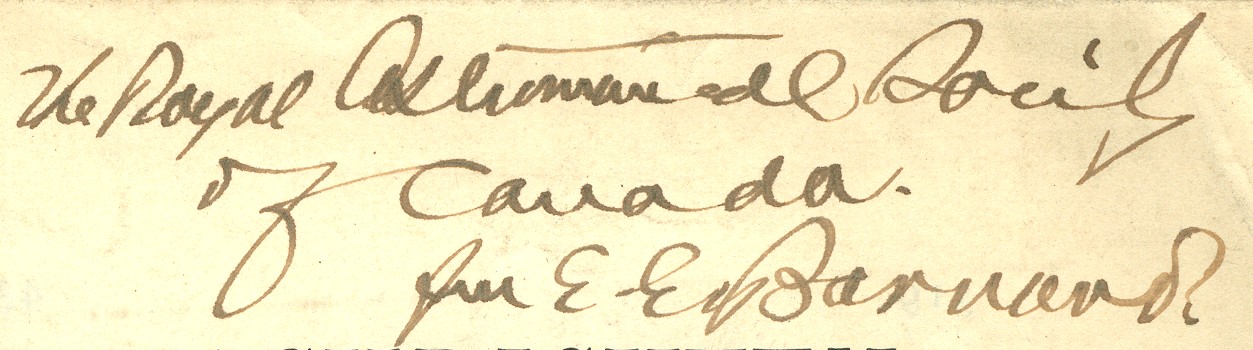 The Royal Astronomical Society
of Canada.
from E. E. Barnard.